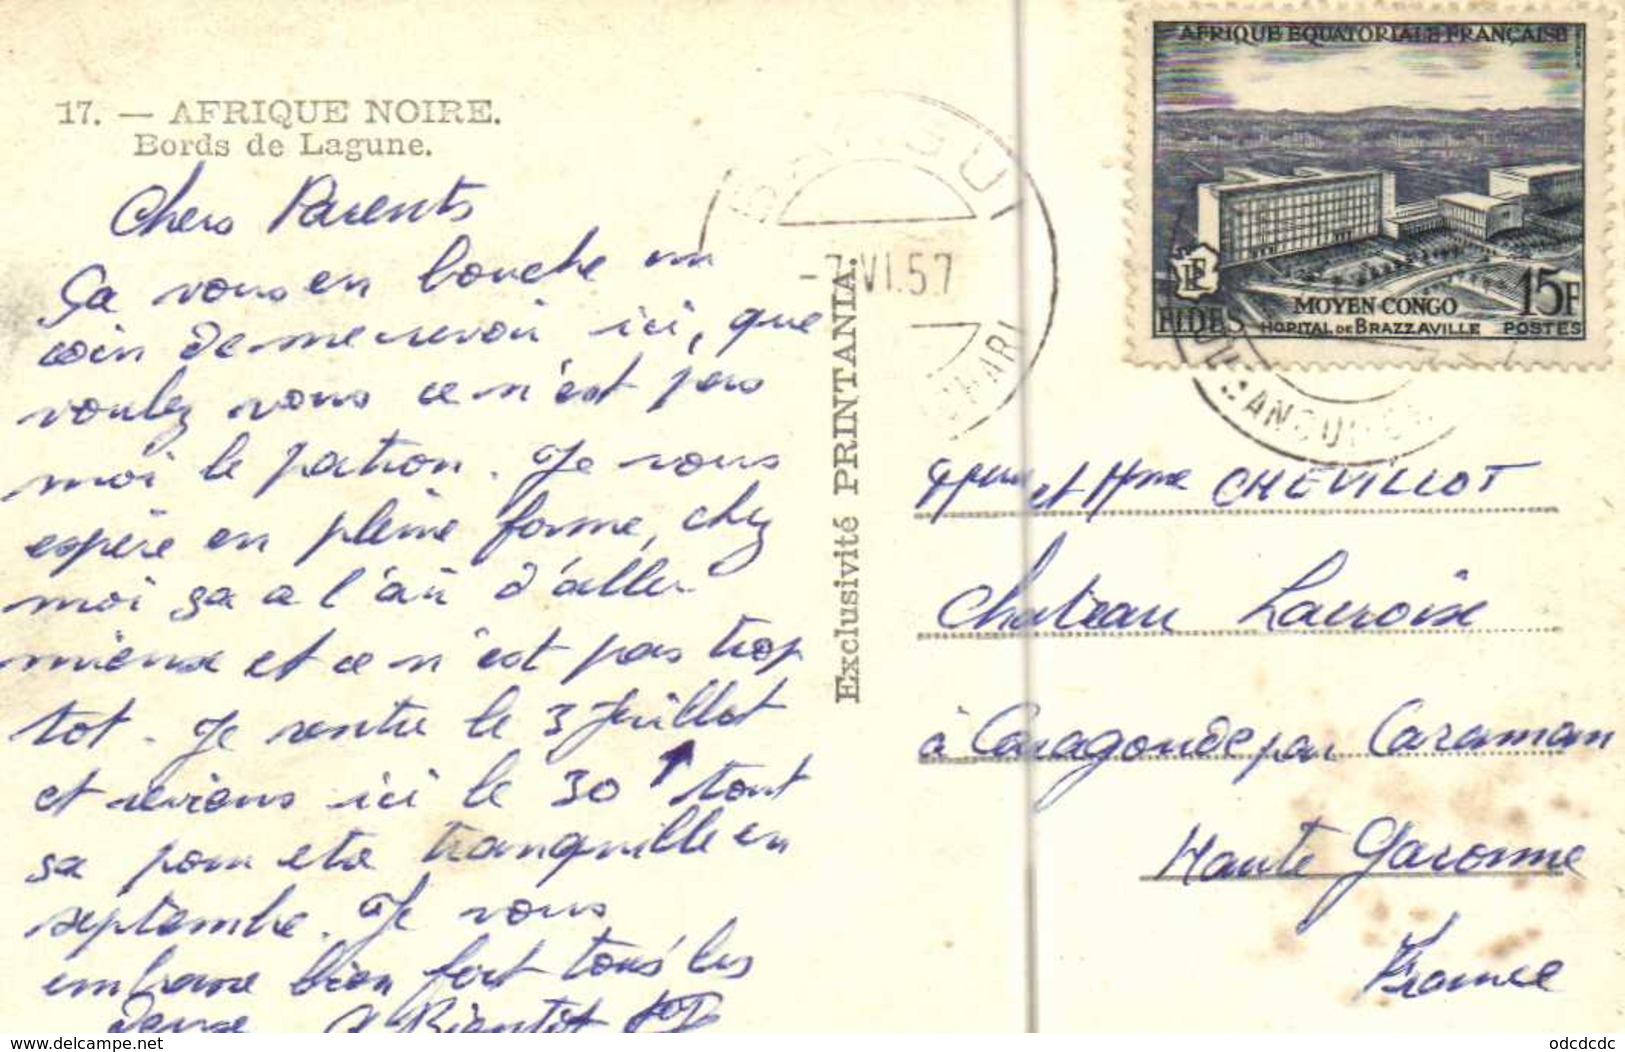 17. — AFRIQUE NOIRE.
Bords de Lagune.
Chers Parents
Ça vous en bouche un
coin de me revoir ici, que
voulez vous ce n'est pas
moi le patron. Je vous
espère en pleine forme, chez
moi ça a l'air d'aller
mieux et ce n'est pas trop
tot. Je rentre le 3 Juillet
et reviens ici le 30 tout
sa pour etre tranquille en
septembre. Je vous
embrasse bien fort tous les
deux. A Bientôt
Exclusivité PRINTANIA.
BANGUI
-7 VI.57
OUBANGUI-CHARI
AFRIQUE EQUATORIALE FRANÇAISE
RF
FIDES
MOYEN CONGO
HOPITAL DE BRAZZAVILLE
15F
POSTES
et Mme CHEVILLOT
Chateau Lacroix
à Caragoude par Caraman
Haute Garonne
France
delcampe.net
odcdcdc